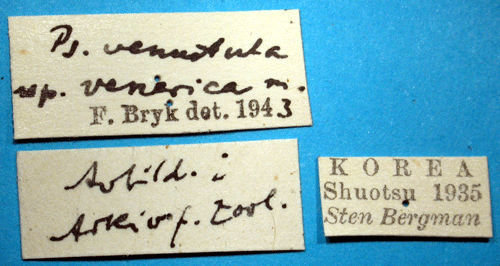 Ps. venustula
ssp. venerica m.
F. Bryk det. 1943
Avbild. i
Arkiv f. Zool.
KOREA
Shuotsu 1935
Sten Bergman